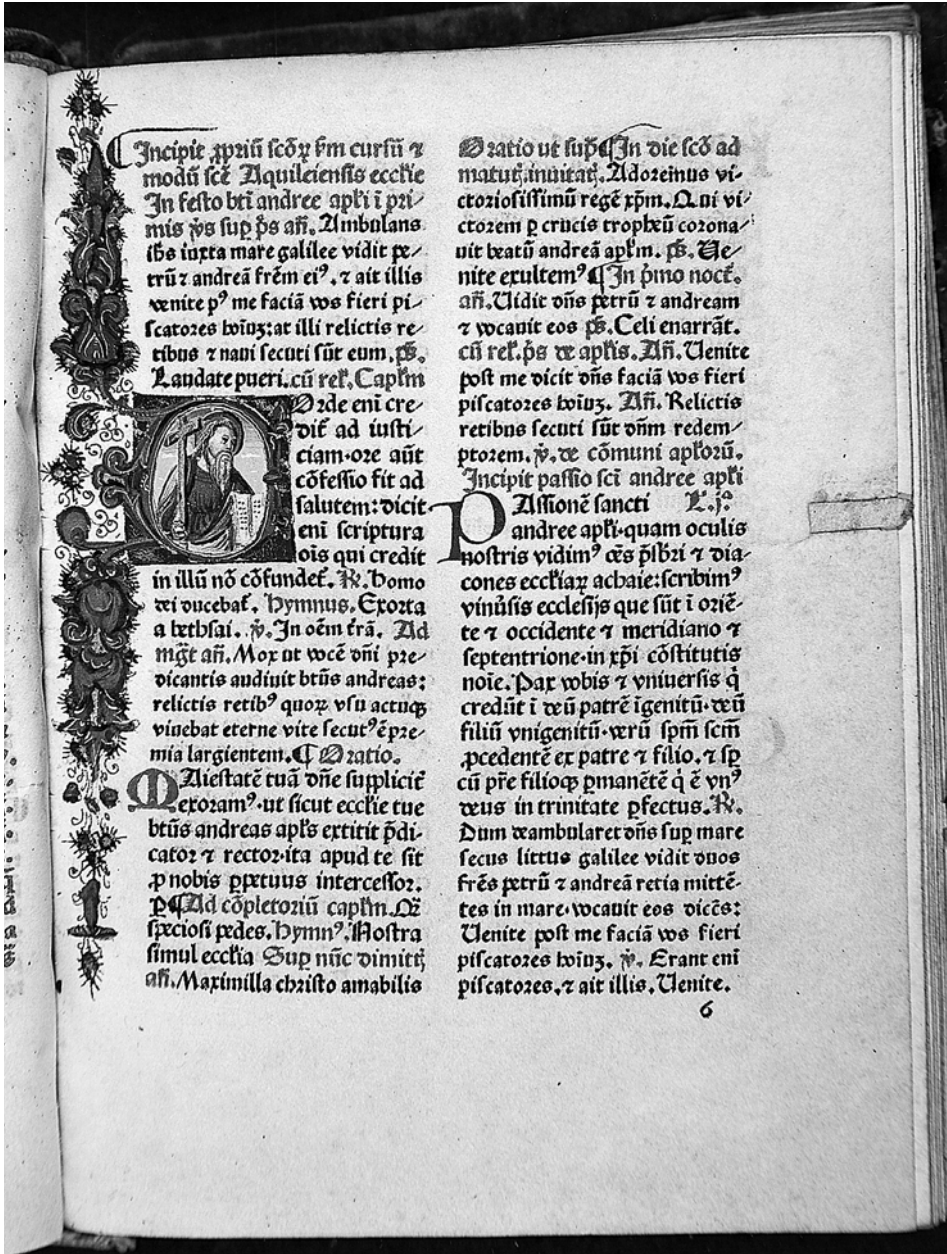 Incipit ꝓpriũ scõꝝ ẜm cursũ ⁊
modũ scẽ Aquileiensis eccl̃ie
In festo bt̃i andree apl̃i ĩ pri⸗
mis p̱s sup p̃s añ. Ambulans
ihs iuxta mare galilee vidit pe⸗
trũ ⁊ andreã frẽm eiꝰ. ⁊ ait illis
venite pꝰ me faciã vos fieri pi⸗
scatores hoĩuꝫ: at illi relictis re⸗
tibus ⁊ naui secuti sũt eum. ps̃.
Laudate pueri. cũ rel̃. Capl̃m
Orde eni cre⸗
dit̃ ad iusti⸗
ciam·ore aũt
cõfessio fit ad
salutem: dicit
eni scriptura
oĩs qui credit
in illũ nõ cõfundet̃. ℟. Homo
dei ducebat̃. Hymnus. Exorta
a bethsai. ℣. In oẽm t̃rã. Ad
mg̃t añ. Mox ut vocẽ dñi pre⸗
dicantis audiuit bt̃us andreas:
relictis retibꝰ quoꝝ vsu actuqꝫ
viuebat eterne vite secutꝰ ẽ pre⸗
mia largientem. ¶ Oratio.
Maiestatẽ tuã dñe supplicit̃
exoramꝰ·ut sicut eccl̃ie tue
bt̃us andreas apl̃s extitit p̃di⸗
cator ⁊ rector·ita apud te sit
ꝓ nobis ꝑpetuus intercessor.
ꝑ ¶ Ad cõpletoriũ capl̃m. Q̃
speciosi pedes. Hymnꝰ. Nostra
simul eccl̃ia Suꝑ nũc dimitt̃
añ. Maximilla christo amabilis
Oratio ut sup̃ ¶ In die scõ ad
matut̃. inuitat̃. Adoremus vi⸗
ctoriosissimũ regẽ xp̃m. Qui vi⸗
ctorem ꝑ crucis tropheũ corona⸗
uit beatũ andreã apl̃m. ps̃. Ue⸗
nite exultemꝰ ¶ In p̃mo noct̃.
añ. Uidit dñs petrũ ⁊ andream
⁊ vocauit eos ps̃. Celi enarrãt.
cũ rel̃. p̃s de apl̃is. Añ. Uenite
post me dicit dñs faciã vos fieri
piscatores hoĩuꝫ. Añ. Relictis
retibus secuti sũt dñm redem⸗
ptorem. ℣. de cõmuni apl̃orũ.
Incipit passio sci andree apl̃i
PAssionẽ sancti L. j.ª
andree apl̃i·quam oculis
nostris vidimꝰ oẽs p̃sbri ⁊ dia⸗
cones eccl̃iaꝝ achaie: scribimꝰ
vinũsis ecclesijs que sũt ĩ oriẽ⸗
te ⁊ occidente ⁊ meridiano ⁊
septentrione·in xp̃i cõstitutis
noĩe. Pax vobis ⁊ vniuersis q̃
credũt ĩ deũ patrẽ ĩgenitũ·deũ
filiũ vnigenitũ·verũ sp̃m scm̃
ꝓcedentẽ ex patre ⁊ filio. ⁊ sꝑ
cũ pr̃e filioqꝫ ꝑmanẽtẽ q̃ ẽ vnꝰ
deus in trinitate ꝑfectus. ℟.
Dum deambularet dñs suꝑ mare
secus littus galilee vidit duos
fr̃es petrũ ⁊ andreã retia mittẽ⸗
tes in mare·vocauit eos dicẽs:
Uenite post me faciã vos fieri
piscatores hoĩuꝫ. ℣. Erant eni
piscatores. ⁊ ait illis. Uenite.
6